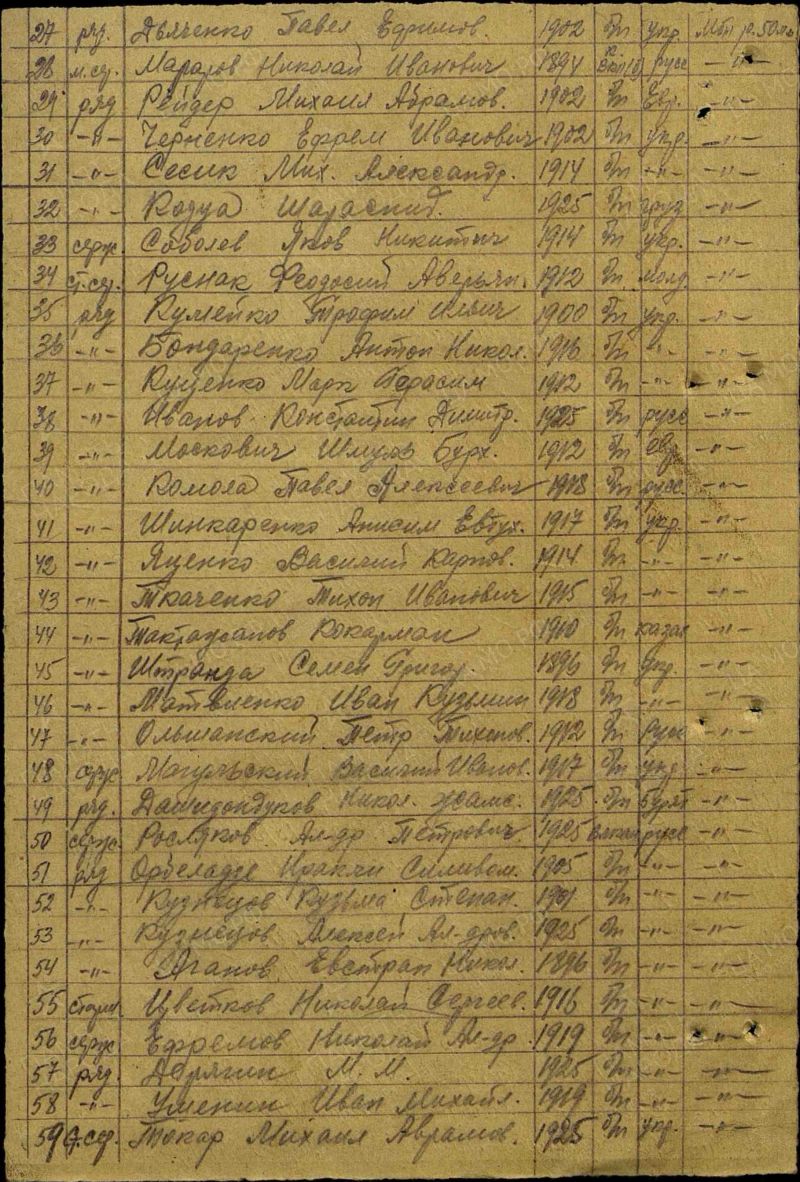 27 ряд. Дьяченко Павел Ефимов. 1902 бп укр. Мбп р. 50
28 м.с. Николай Иванович 1894 русс —"—
29 ряд Рейдер Михаил Абрамов. 1902 бп Евр. —"—
30 —"— Черненко Ефрем Иванович 1902 бп укр. —"—
31 —"— Сесик Мих. Александр. 1914 бп —"— —"—
32 —"— Кодуа 1925 бп груз —"—
33 серж. Соболев Яков Никитич 1914 бп укр. —"—
34 ст.с. Руснак Феодосий Аверьян. 1912 бп молд. —"—
35 ряд Кумейко Трофим Ильич 1900 бп укр. —"—
36 —"— Бондаренко Антон Никол. 1916 бп —"— —"—
37 —"— Куценко Марк Герасим 1912 бп —"— —"—
38 —"— Иванов Константин Димитр. 1925 бп русс —"—
39 —"— Москович Шмуль Бурх. 1912 бп евр —"—
40 —"— Комола Павел Алексеевич 1918 бп русс. —"—
41 —"— Шинкаренко Анисим Евтух. 1917 бп укр. —"—
42 —"— Яценко Василий Карпов. 1914 бп —"— —"—
43 —"— Ткаченко Тихон Иванович 1915 бп —"— —"—
44 —"— Кокарман 1910 бп казах —"—
45 —"— Штранда Семен Григор. 1896 бп укр. —"—
46 —"— Матвиенко Иван Кузьмин 1918 бп —"— —"—
47 —"— Ольшанский Петр Тихонов. 1912 бп Русс —"—
48 серж Могильский Василий Иванов. 1917 бп укр —"—
49 ряд. Дашидондуков Никол. 1925 бп Бурят —"—
50 серж. Росляков Ал-др Петрович 1925 русс —"—
51 ряд Орбеладзе Иракли Силивом. 1905 бп —"— —"—
52 —"— Кузнецов Кузьма Степан. 1901 бп —"— —"—
53 —"— Кузнецов Алексей Ал-дров. 1925 бп —"— —"—
54 —"— Аганов Евстрап Никол. 1896 бп —"— —"—
55 Цветков Николай Сергеев. 1916 бп —"— —"—
56 серж Ефремов Николай Ал-др 1919 бп —"— —"—
57 ряд. Дерягин М. М. 1925 бп —"— —"—
58 —"— Уменин Иван Михайл. 1919 бп —"— —"—
59 с.сер. Токар Михаил Аврамов. 1925 бп укр. —"—